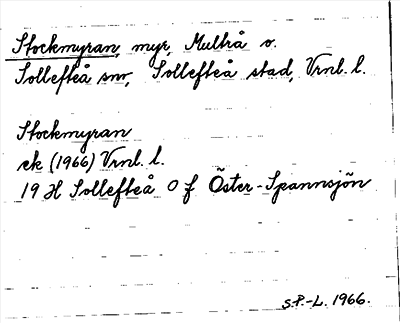 Stockmyran, myr, Multrå o.
Sollefteå snr, Sollefteå stad, Vrnl. l.
Stockmyran
ek (1966) Vrnl. l.
19 H Sollefteå O f Öster-Spannsjön
S.P.-L. 1966.